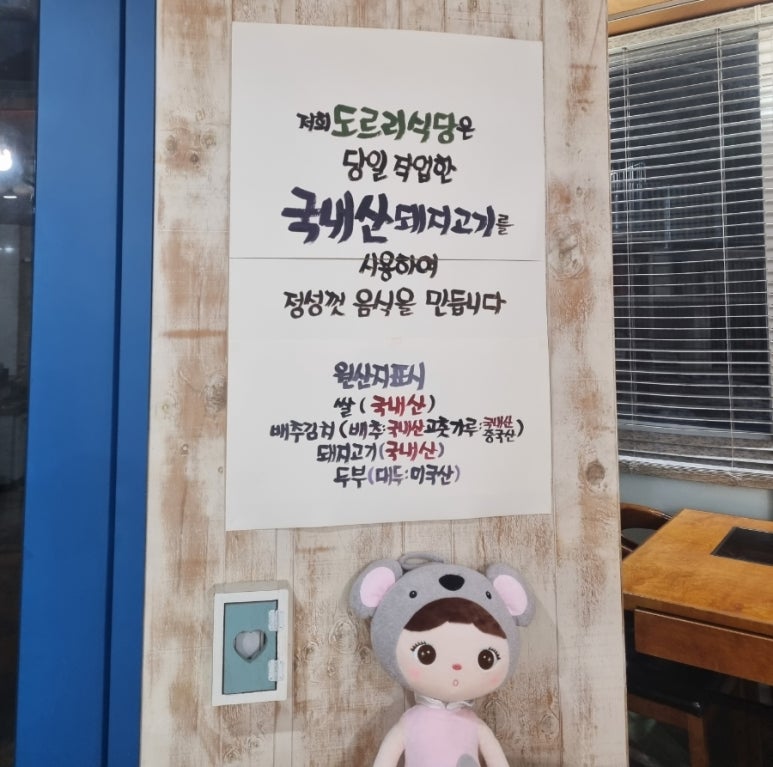 저희 도르리식당은
당일 작업한
국내산 돼지고기를
사용하여
정성껏 음식을 만듭니다
원산지표시
쌀 (국내산)
배추김치 (배추:국내산 고춧가루:국내산 중국산)
돼지고기 (국내산)
두부 (대두:미국산)